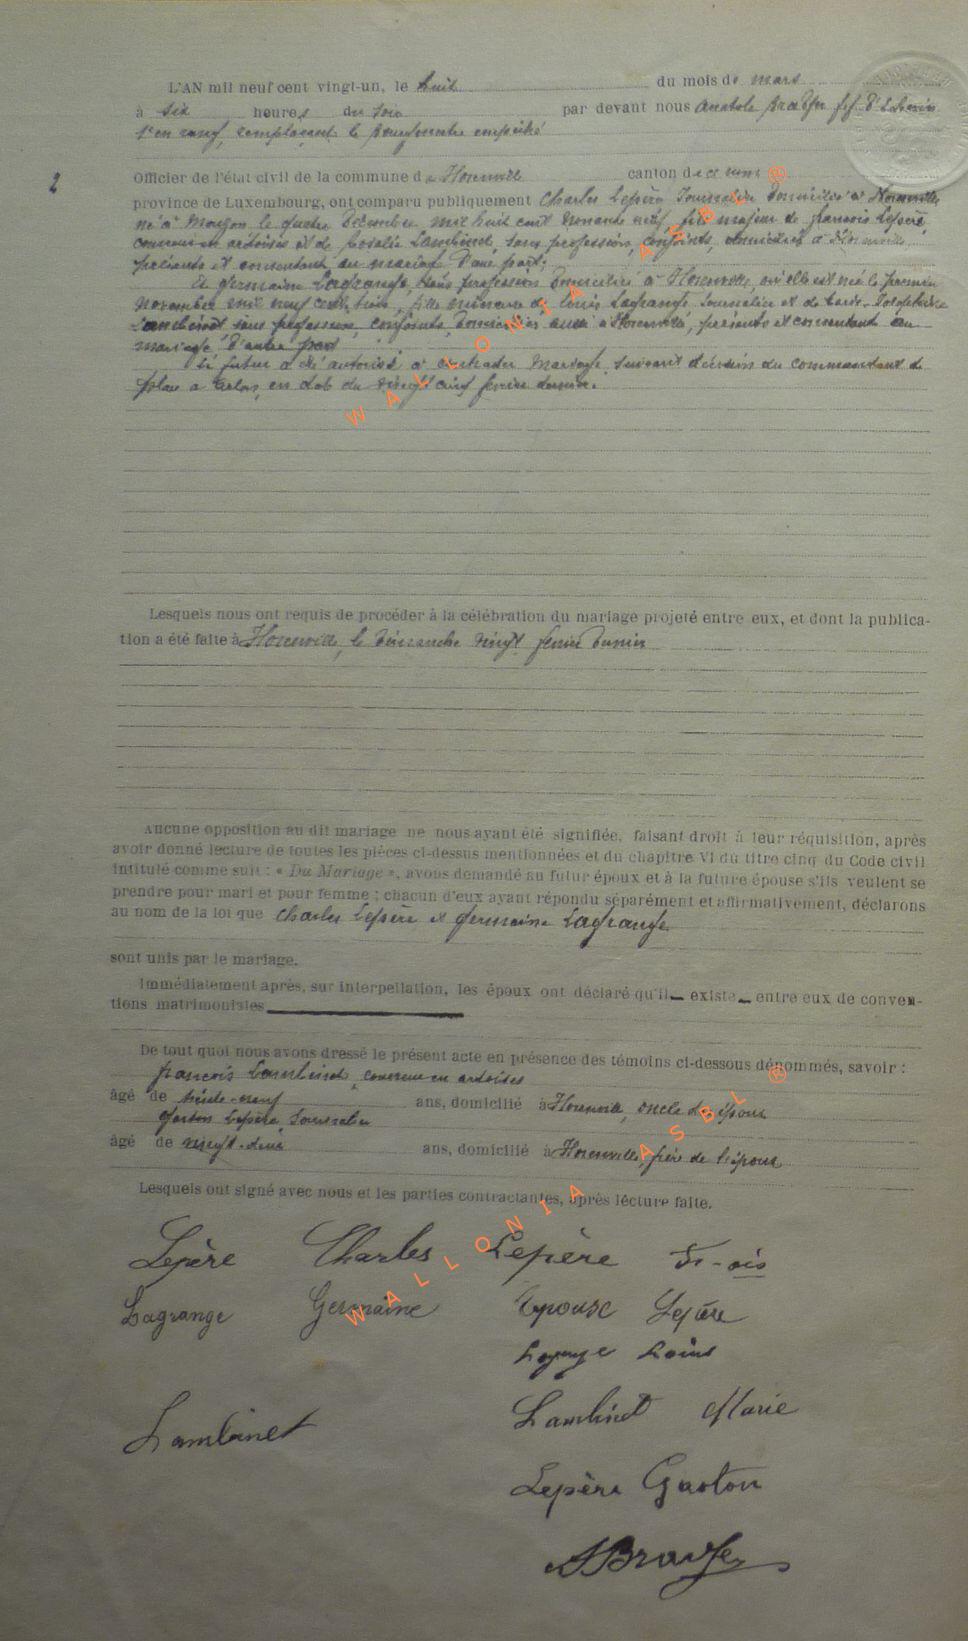 L'AN mil neuf cent vingt-un, le huit du mois de mars
à six heures du soir par devant nous Anatole ff. d'Echevin
remplaçant le Bourgmestre empêché
2
Officier de l'état civil de la commune de Honville canton de
province de Luxembourg, ont comparu publiquement Charles Lepère Journalier domicilié à
né à le quatre Décembre mil huit cent nonante neuf, fils majeur de françois Lepère,
couvreur en ardoises et de Rosalie Lambinet, sans profession, conjoints, domiciliés à
présents et consentant au mariage d'une part;
Et germaine Lagrange, sans profession domiciliée à où elle est née le premier
novembre mil neuf cent trois, fille mineure de Louis Lagrange Journalier et de Marie
Lambinet sans profession, conjoints, domiciliés aussi à présents et consentant au
mariage d'autre part
Le futur a été autorisé à contracter mariage suivant décision du commandant de
place à Arlon, en date du vingt cinq février dernier.
Lesquels nous ont requis de procéder à la célébration du mariage projeté entre eux, et dont la publica-
tion a été faite à le dimanche vingt février dernier
Aucune opposition au dit mariage ne nous ayant été signifiée, faisant droit à leur réquisition, après
avoir donné lecture de toutes les pièces ci-dessus mentionnées et du chapitre VI du titre cinq du Code civil
intitulé comme suit : « Du Mariage », avons demandé au futur époux et à la future épouse s'ils veulent se
prendre pour mari et pour femme ; chacun d'eux ayant répondu séparément et affirmativement, déclarons
au nom de la loi que Charles Lepère et germaine Lagrange
sont unis par le mariage.
Immédiatement après, sur interpellation, les époux ont déclaré qu'il existe entre eux de conven-
tions matrimoniales
De tout quoi nous avons dressé le présent acte en présence des témoins ci-dessous dénommés, savoir :
françois Lambinet, couvreur en ardoises
âgé de trente-neuf ans, domicilié à oncle de époux
Gaston Lepère, Journalier
âgé de vingt-deux ans, domicilié à frère de l'époux
Lesquels ont signé avec nous et les parties contractantes, après lecture faite.
Lepère Charles Lepère Fr-ois
Lagrange Germaine Epouse Lepère
Lagrange Louis
Lambinet Lambinet Marie
Lepère Gaston
WALLONIA ASBL ®
WALLONIA ASBL ®